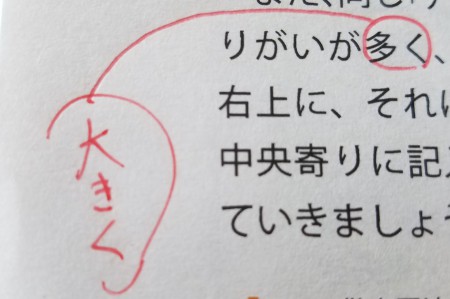 りがいが多く、
右上に、それに
中央寄りに記入
ていきましょう
大きく